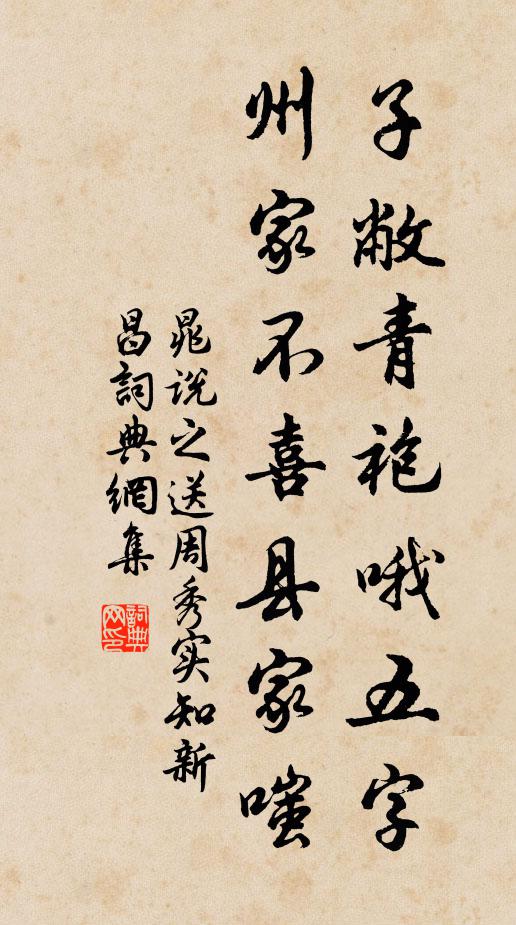 子敝青袍哦五字
州家不喜县家嗤
晁说之送周秀实知新
昌詞典網集
詞典網印